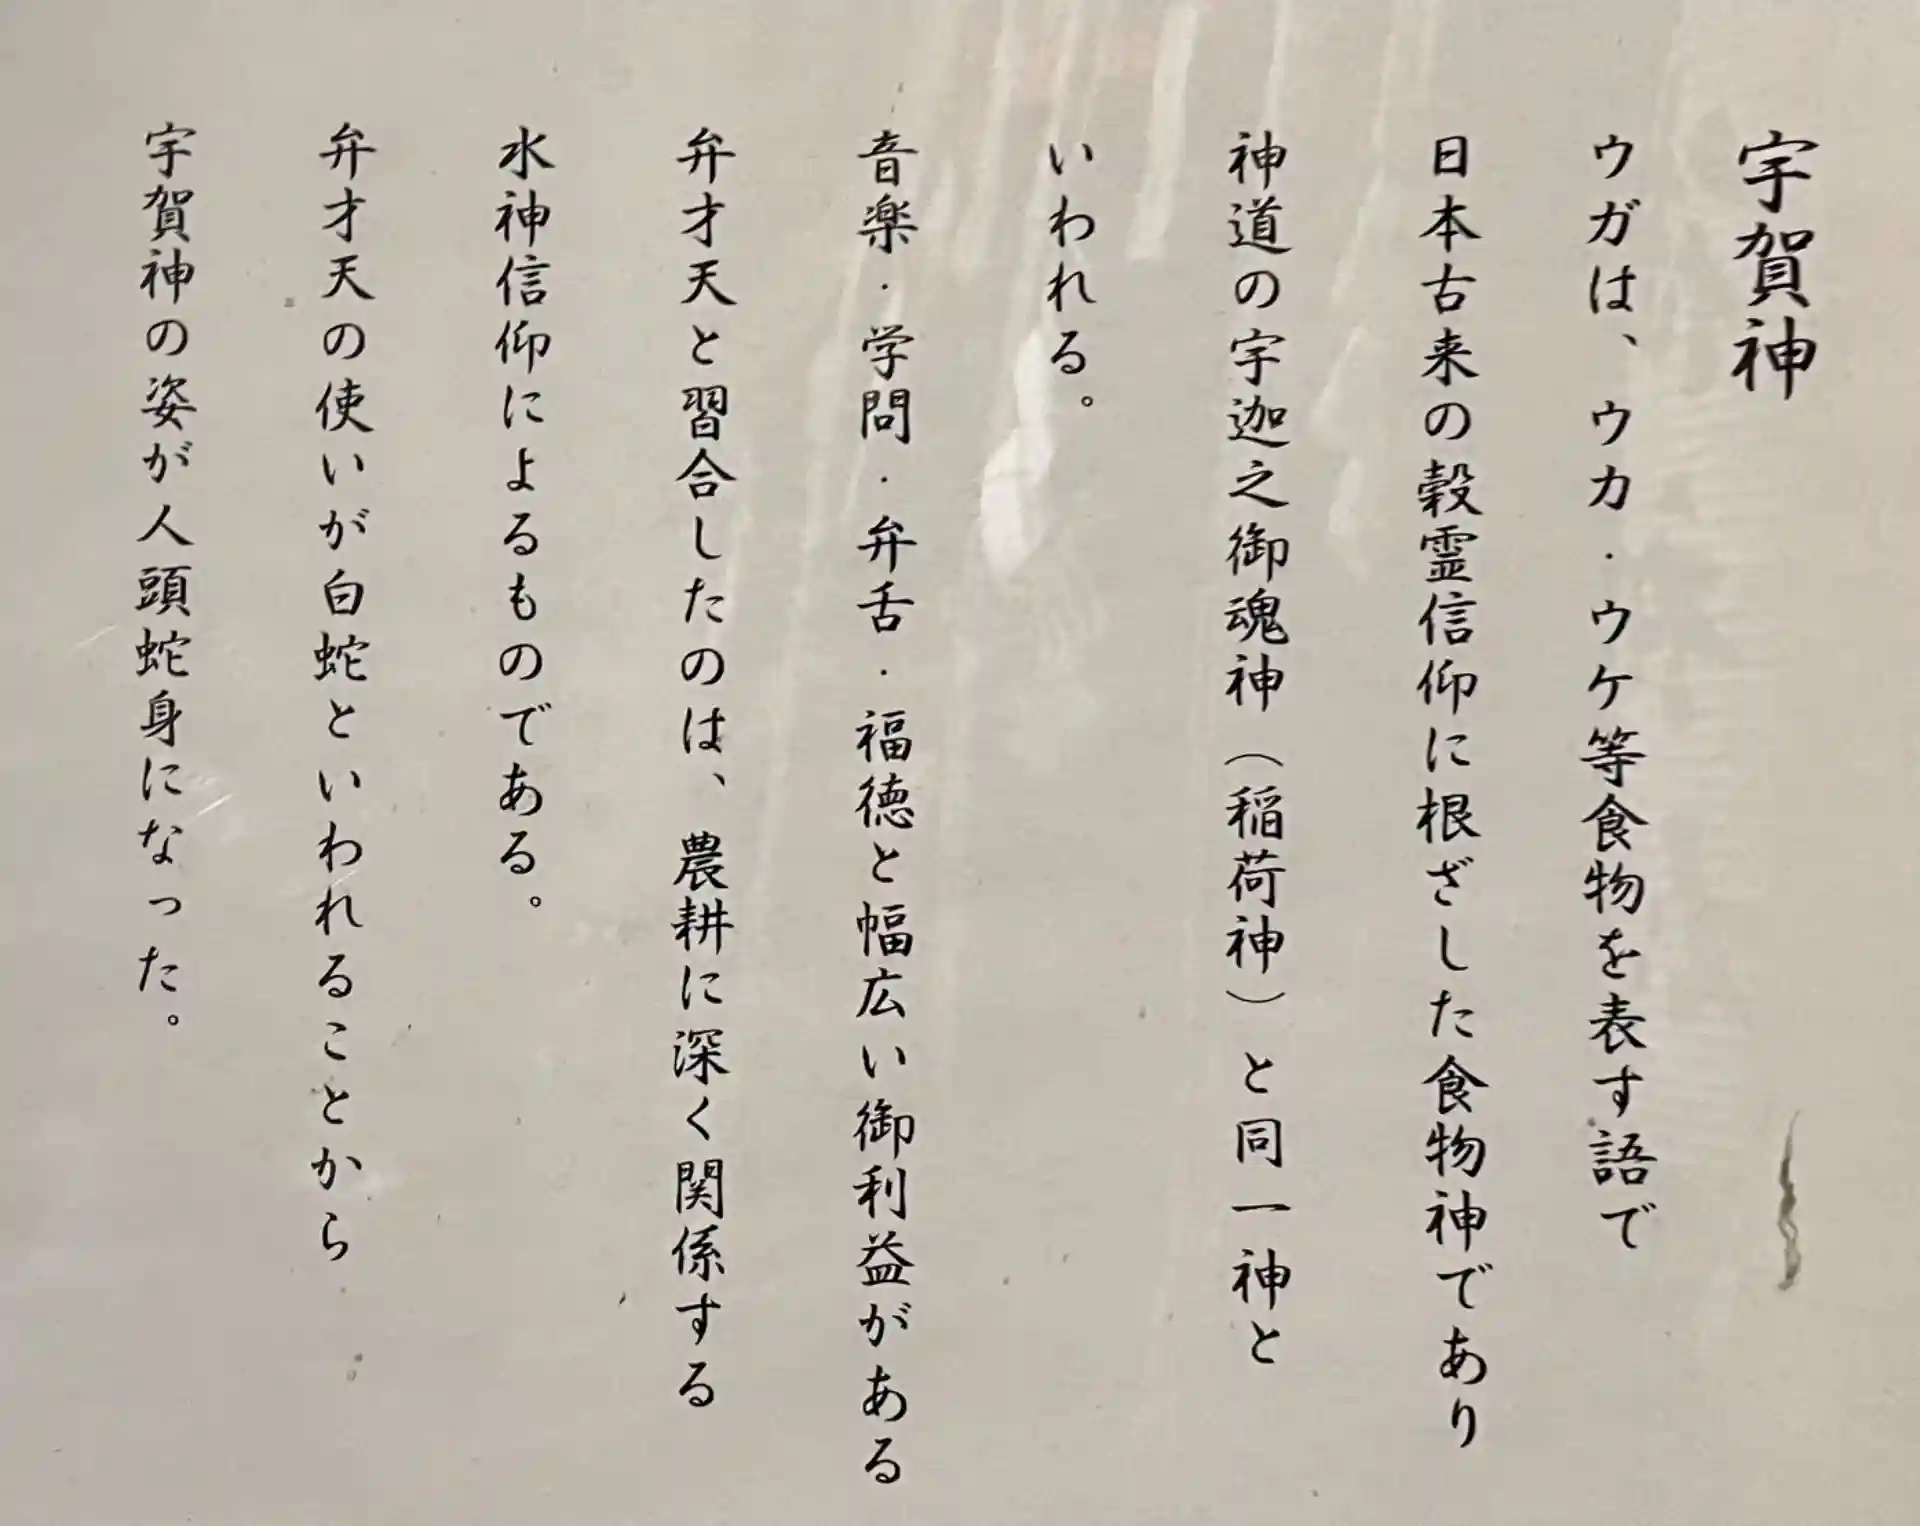 宇賀神
ウガは、ウカ・ウケ等食物を表す語で
日本古来の穀霊信仰に根ざした食物神であり
神道の宇迦之御魂神（稲荷神）と同一神と
いわれる。
音楽・学問・弁舌・福徳と幅広い御利益がある
弁才天と習合したのは、農耕に深く関係する
水神信仰によるものである。
弁才天の使いが白蛇といわれることから
宇賀神の姿が人頭蛇身になった。